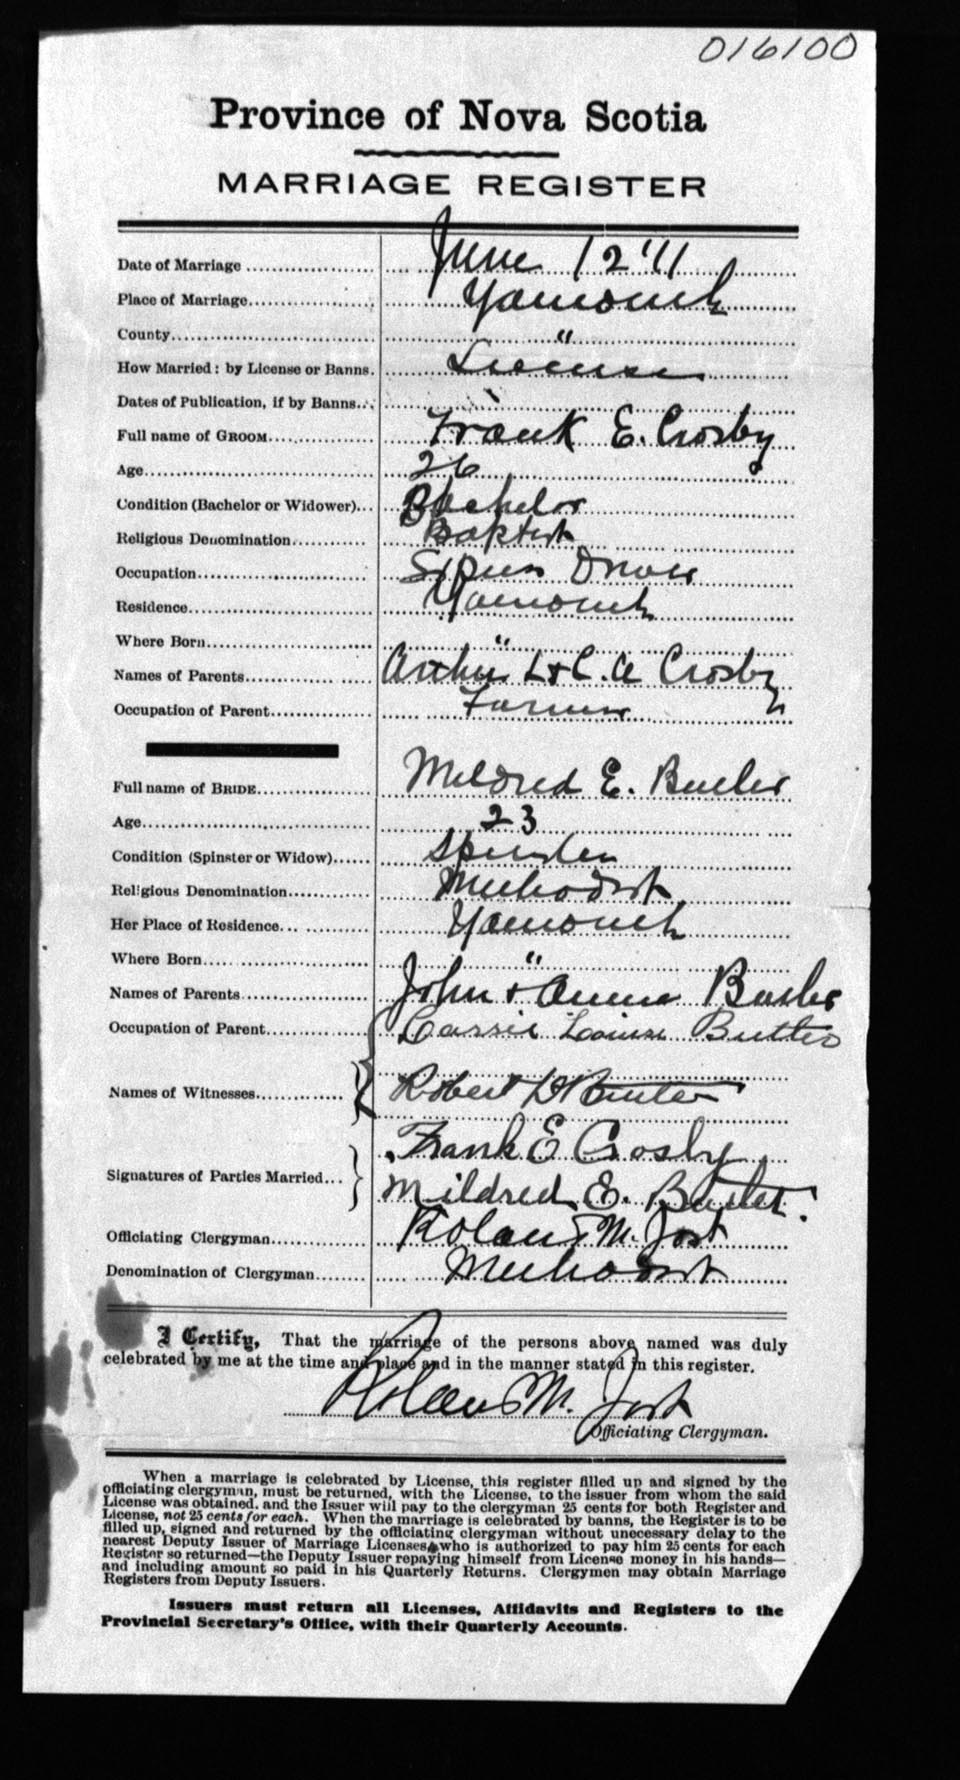 016100
Province of Nova Scotia
MARRIAGE REGISTER
Date of Marriage June 12 '11
Place of Marriage Yarmouth
County "
How Married: by License or Banns. License
Dates of Publication, if by Banns
Full name of GROOM Frank E. Crosby
Age 26
Condition (Bachelor or Widower) Bachelor
Religious Denomination Baptist
Occupation
Residence Yarmouth
Where Born "
Names of Parents Arthur L & C. A Crosby
Occupation of Parent Farmer
Full name of BRIDE Mildred E. Butler
Age 23
Condition (Spinster or Widow) Spinster
Religious Denomination Methodist
Her Place of Residence Yarmouth
Where Born "
Names of Parents John & Annie Butler
Occupation of Parent
Cassie Louise Butler
Names of Witnesses Robert
Signatures of Parties Married Frank E Crosby
Mildred E. Butler.
Officiating Clergyman Roland M. Jost
Denomination of Clergyman Methodist
I Certify, That the marriage of the persons above named was duly
celebrated by me at the time and place and in the manner stated in this register.
Roland M. Jost
Officiating Clergyman.
When a marriage is celebrated by License, this register filled up and signed by the
officiating clergyman, must be returned, with the License, to the issuer from whom the said
License was obtained, and the Issuer will pay to the clergyman 25 cents for both Register and
License, not 25 cents for each. When the marriage is celebrated by banns, the Register is to be
filled up, signed and returned by the officiating clergyman without unnecessary delay to the
nearest Deputy Issuer of Marriage Licenses, who is authorized to pay him 25 cents for each
Register so returned—the Deputy Issuer repaying himself from License money in his hands—
and including amount so paid in his Quarterly Returns. Clergymen may obtain Marriage
Registers from Deputy Issuers.
Issuers must return all Licenses, Affidavits and Registers to the
Provincial Secretary's Office, with their Quarterly Accounts.